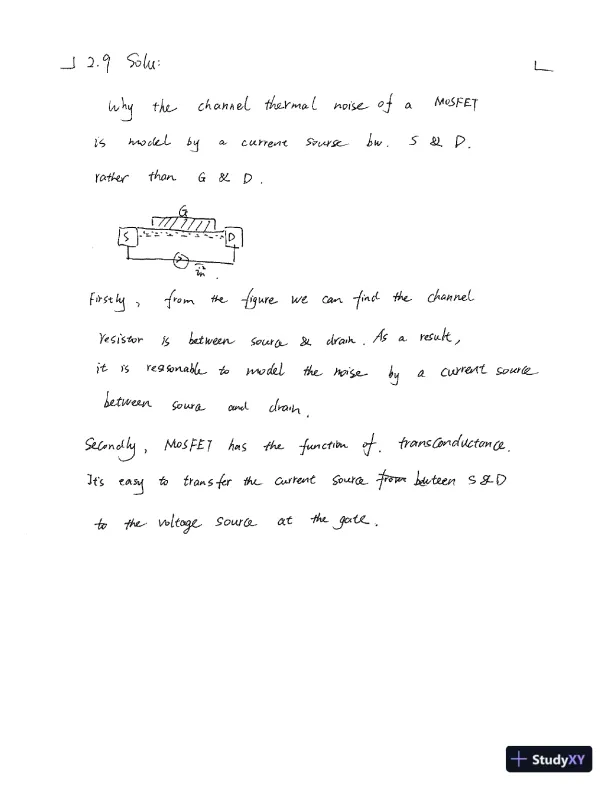 2.9 Solu:
Why the channel thermal noise of a MOSFET
is model by a current sourse bw. S & D.
rather than G & D.
G
S D
in²
Firstly, from the figure we can find the channel
resistor is between source & drain. As a result,
it is reasonable to model the noise by a current source
between source and drain.
Secondly, MOSFET has the function of. transconductance.
It's easy to transfer the current source from between S & D
to the voltage source at the gate.
StudyXY